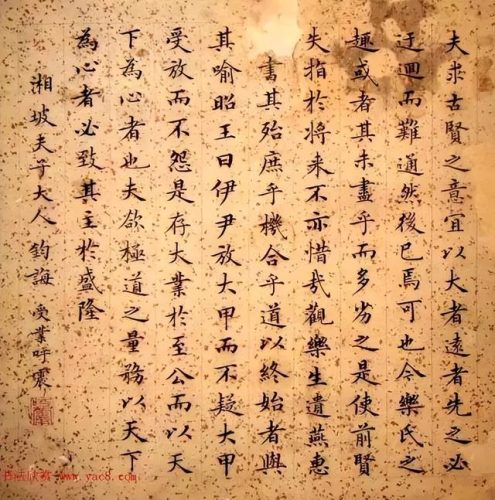 夫求古賢之意宜以大者遠者先之必
迂迴而難通然後已焉可也今樂氏之
趣或者其未盡乎而多劣之是使前賢
失指於将来不亦惜哉觀樂生遺燕惠
書其殆庶乎機合乎道以終始者與
其喻昭王曰伊尹放大甲而不疑大甲
受放而不怨是存大業於至公而以天
下為心者也夫欲極道之量務以天下
為心者必致其主於盛隆
湘坡夫子大人 鈞誨 受業 震
www.yac8.com